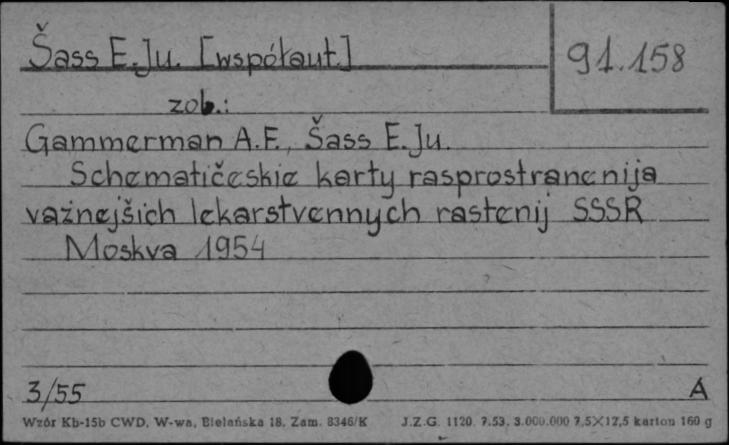 Šass E.Ju. [współaut.]
91.158
zob.:
Gammerman A.F., Šass E.Ju.
Schematičeskie karty rasprostranenija
važnejšich lekarstvennych rastenij SSSR
Moskva 1954
3/55
A
Wzór Kb-15b CWD, W-wa, Bielańska 18. Zam. 8346/K J.Z.G. 1120. 7.53. 3.000.000 7,5×12,5 karton 160 g